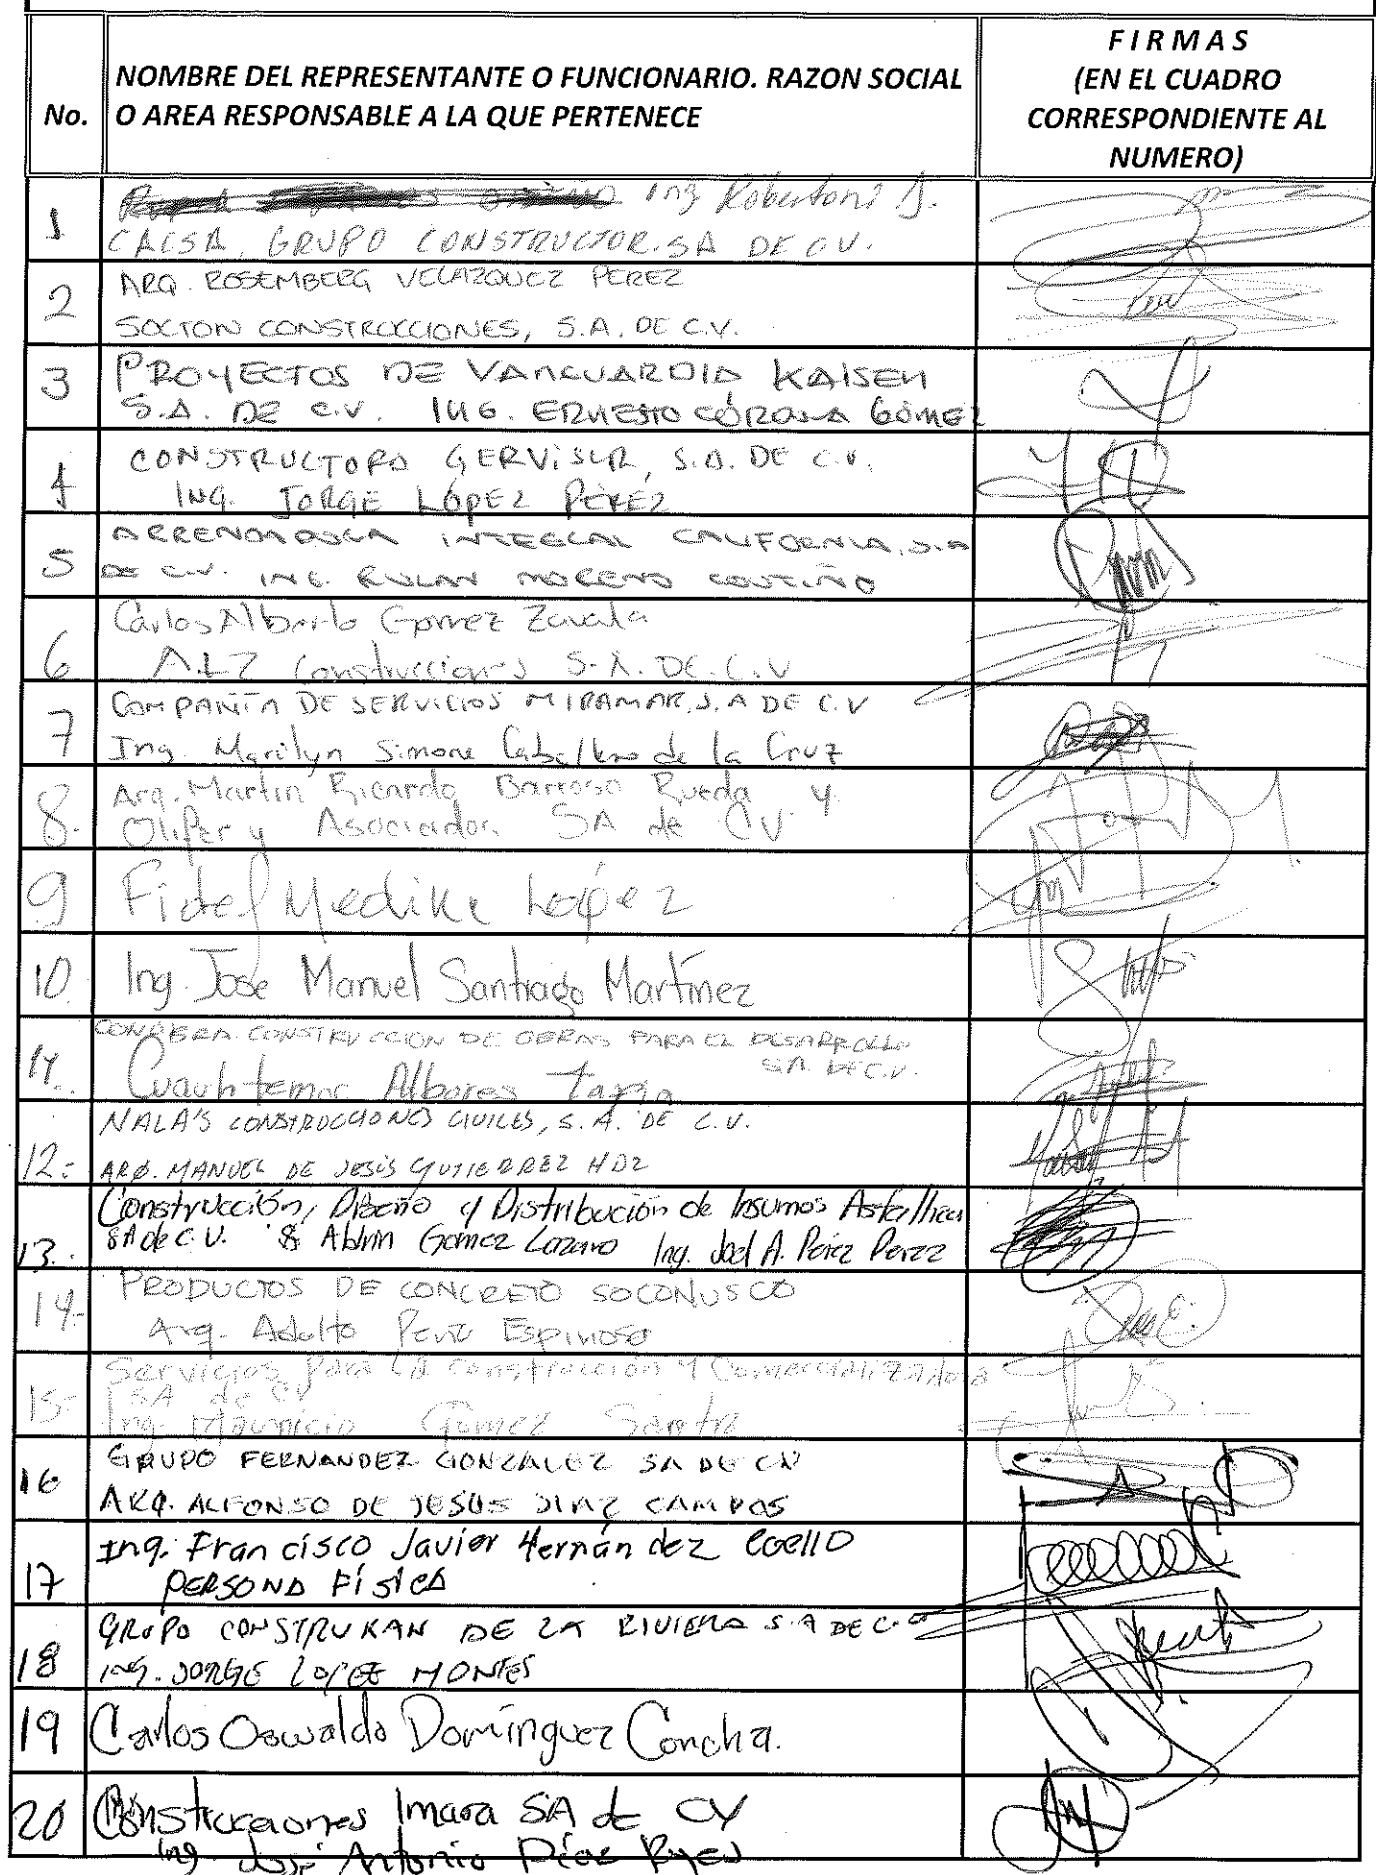 No.
NOMBRE DEL REPRESENTANTE O FUNCIONARIO. RAZON SOCIAL
O AREA RESPONSABLE A LA QUE PERTENECE
FIRMAS
(EN EL CUADRO
CORRESPONDIENTE AL
NUMERO)
1 Ing
CACSA, GRUPO CONSTRUCTOR. SA DE C.V.
2 ARQ. ROSEMBERG VELAZQUEZ PEREZ
SOCTON CONSTRUCCIONES, S.A. DE C.V.
3 PROYECTOS DE VANGUARDIA KAISEN
S.A. DE C.V. ING. ERNESTO CÓRDOVA GÓMEZ
4 CONSTRUCTORA GERVISUR, S.A. DE C.V.
ING. JORGE LÓPEZ PÉREZ
5 ARRENDADORA INTEGRAL CALIFORNIA, S.A
DE C.V. ING. RULAN MORENO COUTIÑO
6 Carlos Alberto Gomez Zavala
A.L.Z Construcciones S.A. DE. C.V
7 COMPAÑÍA DE SERVICIOS MIRAMAR, S.A DE C.V
Ing. Marilyn Simone Caballero de la Cruz
8. Arq. Martin Ricardo Barroso Rueda y
Olifer y Asociados SA de CV
9 Fidel Lopez
10 Ing. Jose Manuel Santiago Martinez
11.- CONSTRUCCION DE OBRAS PARA EL DESARROLLO
SA. DE C.V.
Cuauhtemoc Albores Tapia
12.- NALA'S CONSTRUCCIONES CIVILES, S.A. DE C.V.
ARQ. MANUEL DE JESÚS GUTIERREZ HDZ
13.- Construcción, Diseño y Distribución de Insumos
SA de C.V. Gomez Lozano Ing. Joel A. Pérez Perez
14.- PRODUCTOS DE CONCRETO SOCONUSCO
Arq. Adolfo Perez Espinosa
15.- Servicios para La construcción y Comercializadora
SA de CV
Ing. Mauricio Gomez
16 GRUPO FERNANDEZ GONZALEZ SA DE CV
ARQ. ALFONSO DE JESUS DIAZ CAMPOS
17 Ing. Francisco Javier Hernández Coello
PERSONA FÍSICA
18 GRUPO CONSTRUKAN DE LA RIVIERA S.A DE C.V
ING. JORGE LOPEZ MONTES
19 Carlos Oswaldo Domínguez Concha.
20 Construcciones Imara SA de CV
Ing José Antonio